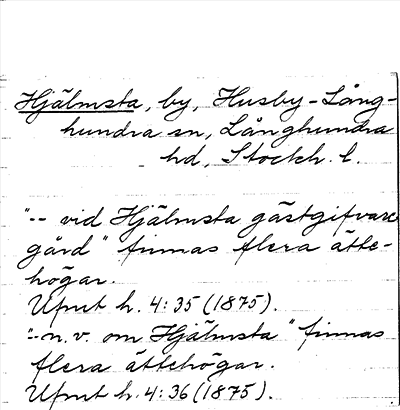 Hjälmsta, by, Husby-Lång-
hundra sn, Långhundra
hd, Stockh. l.
"-- vid Hjälmsta gästgifvare
gård" finnas flera ätte-
högar.
Upmt h. 4:35 (1875).
"--n.v. om Hjälmsta" finnas
flera ättehögar.
Upmt h. 4:36 (1875).